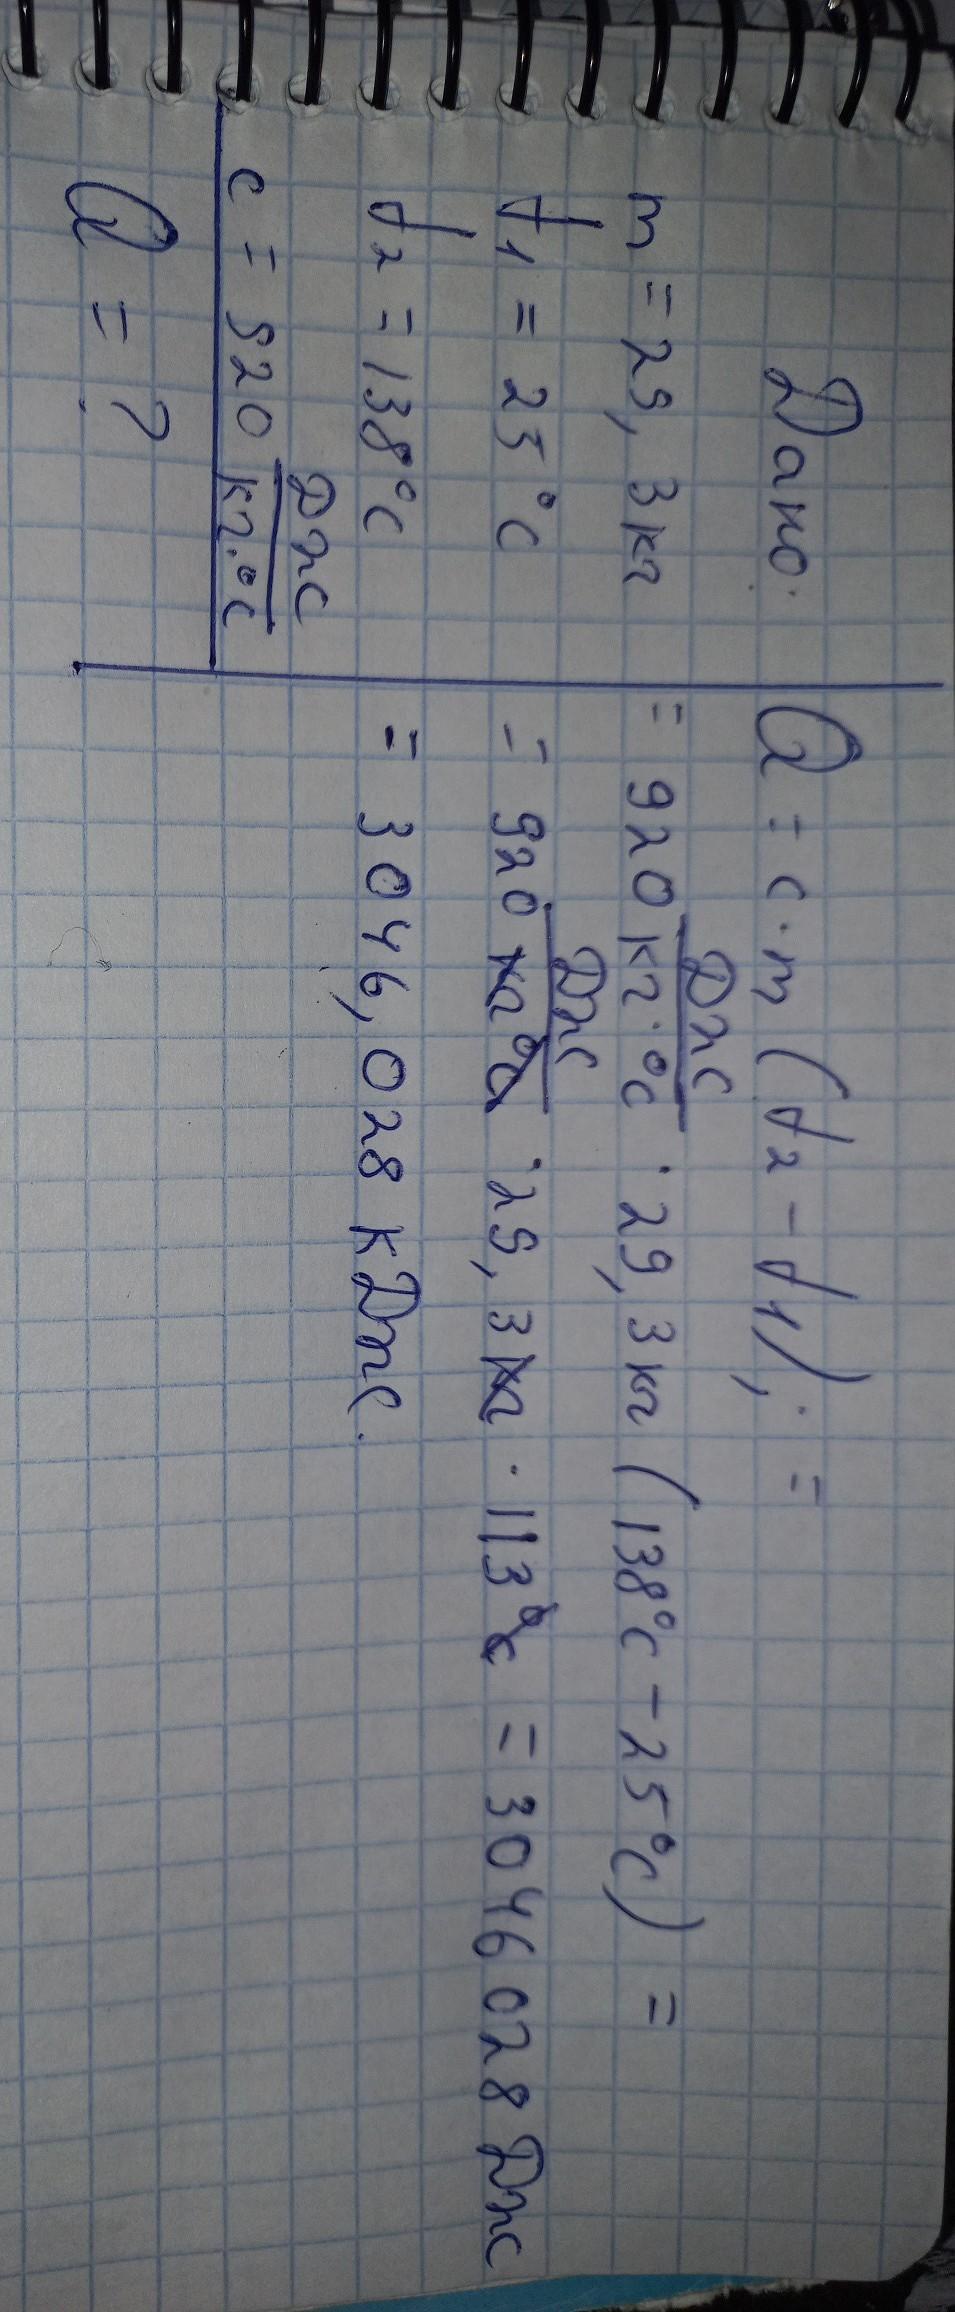 Дано:
m = 29,3 кг
t1 = 25°C
t2 = 138°C
c = 920 Дж/кг·°C
Q = ?
Q = c · m (t2 - t1); =
= 920 Дж/кг·°C · 29,3 кг (138°C - 25°C) =
= 920 Дж/кг°C · 29,3 кг · 113°C = 3046028 Дж
= 3046,028 кДж.